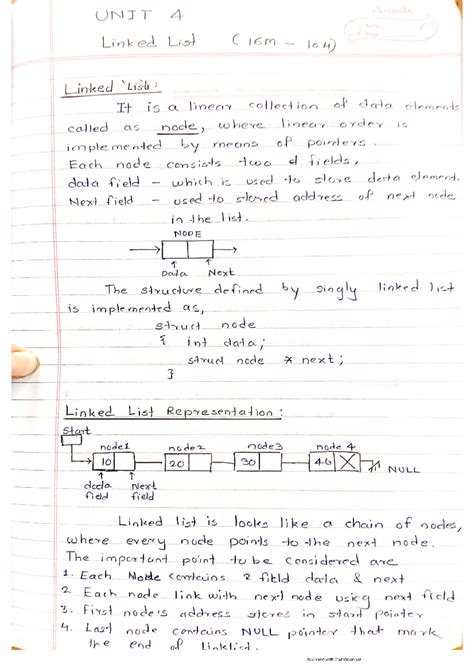 classmate
Date
Page
UNIT 4
Linked List (16M - 10H)
Linked List:
It is a linear collection of data elements
called as node, where linear order is
implemented by means of pointers.
Each node consists two d fields,
data field - which is used to store data element.
Next field - used to stored address of next node
in the list.
NODE
Data Next
The structure defined by singly linked list
is implemented as,
struct node
{ int data;
struct node * next;
}
Linked List Representation:
Start
node1 node2 node3 node 4
10 20 30 40 NULL
data Next
field field
Linked list is looks like a chain of nodes,
where every node points to the next node.
The important point to be considered are
1. Each Node contains 2 field data & next
2. Each node link with next node using next field
3. First node's address stores in start pointer
4. Last node contains NULL pointer that mark
the end of Linklist.
Scanned with CamScanner